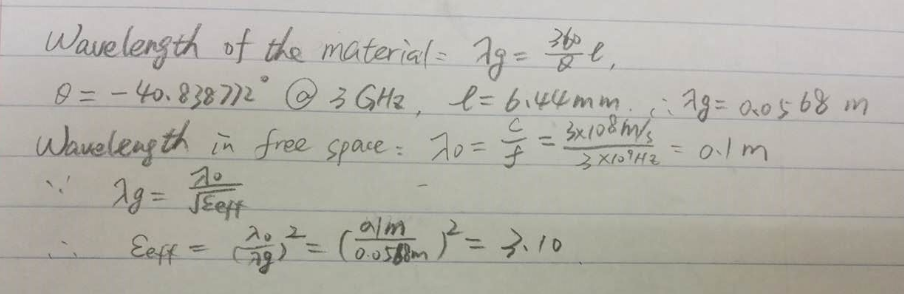 Wavelength of the material = λg = 360/θ l,
θ = -40.838772° @ 3 GHz, l = 6.44mm. ∴ λg = 0.0568 m
Wavelength in free space: λ0 = c/f = 3×10⁸m/s / 3×10⁹Hz = 0.1 m
∵ λg = λ0/√εeff
∴ εeff = (λ0/λg)² = (0.1m/0.0568m)² = 3.10